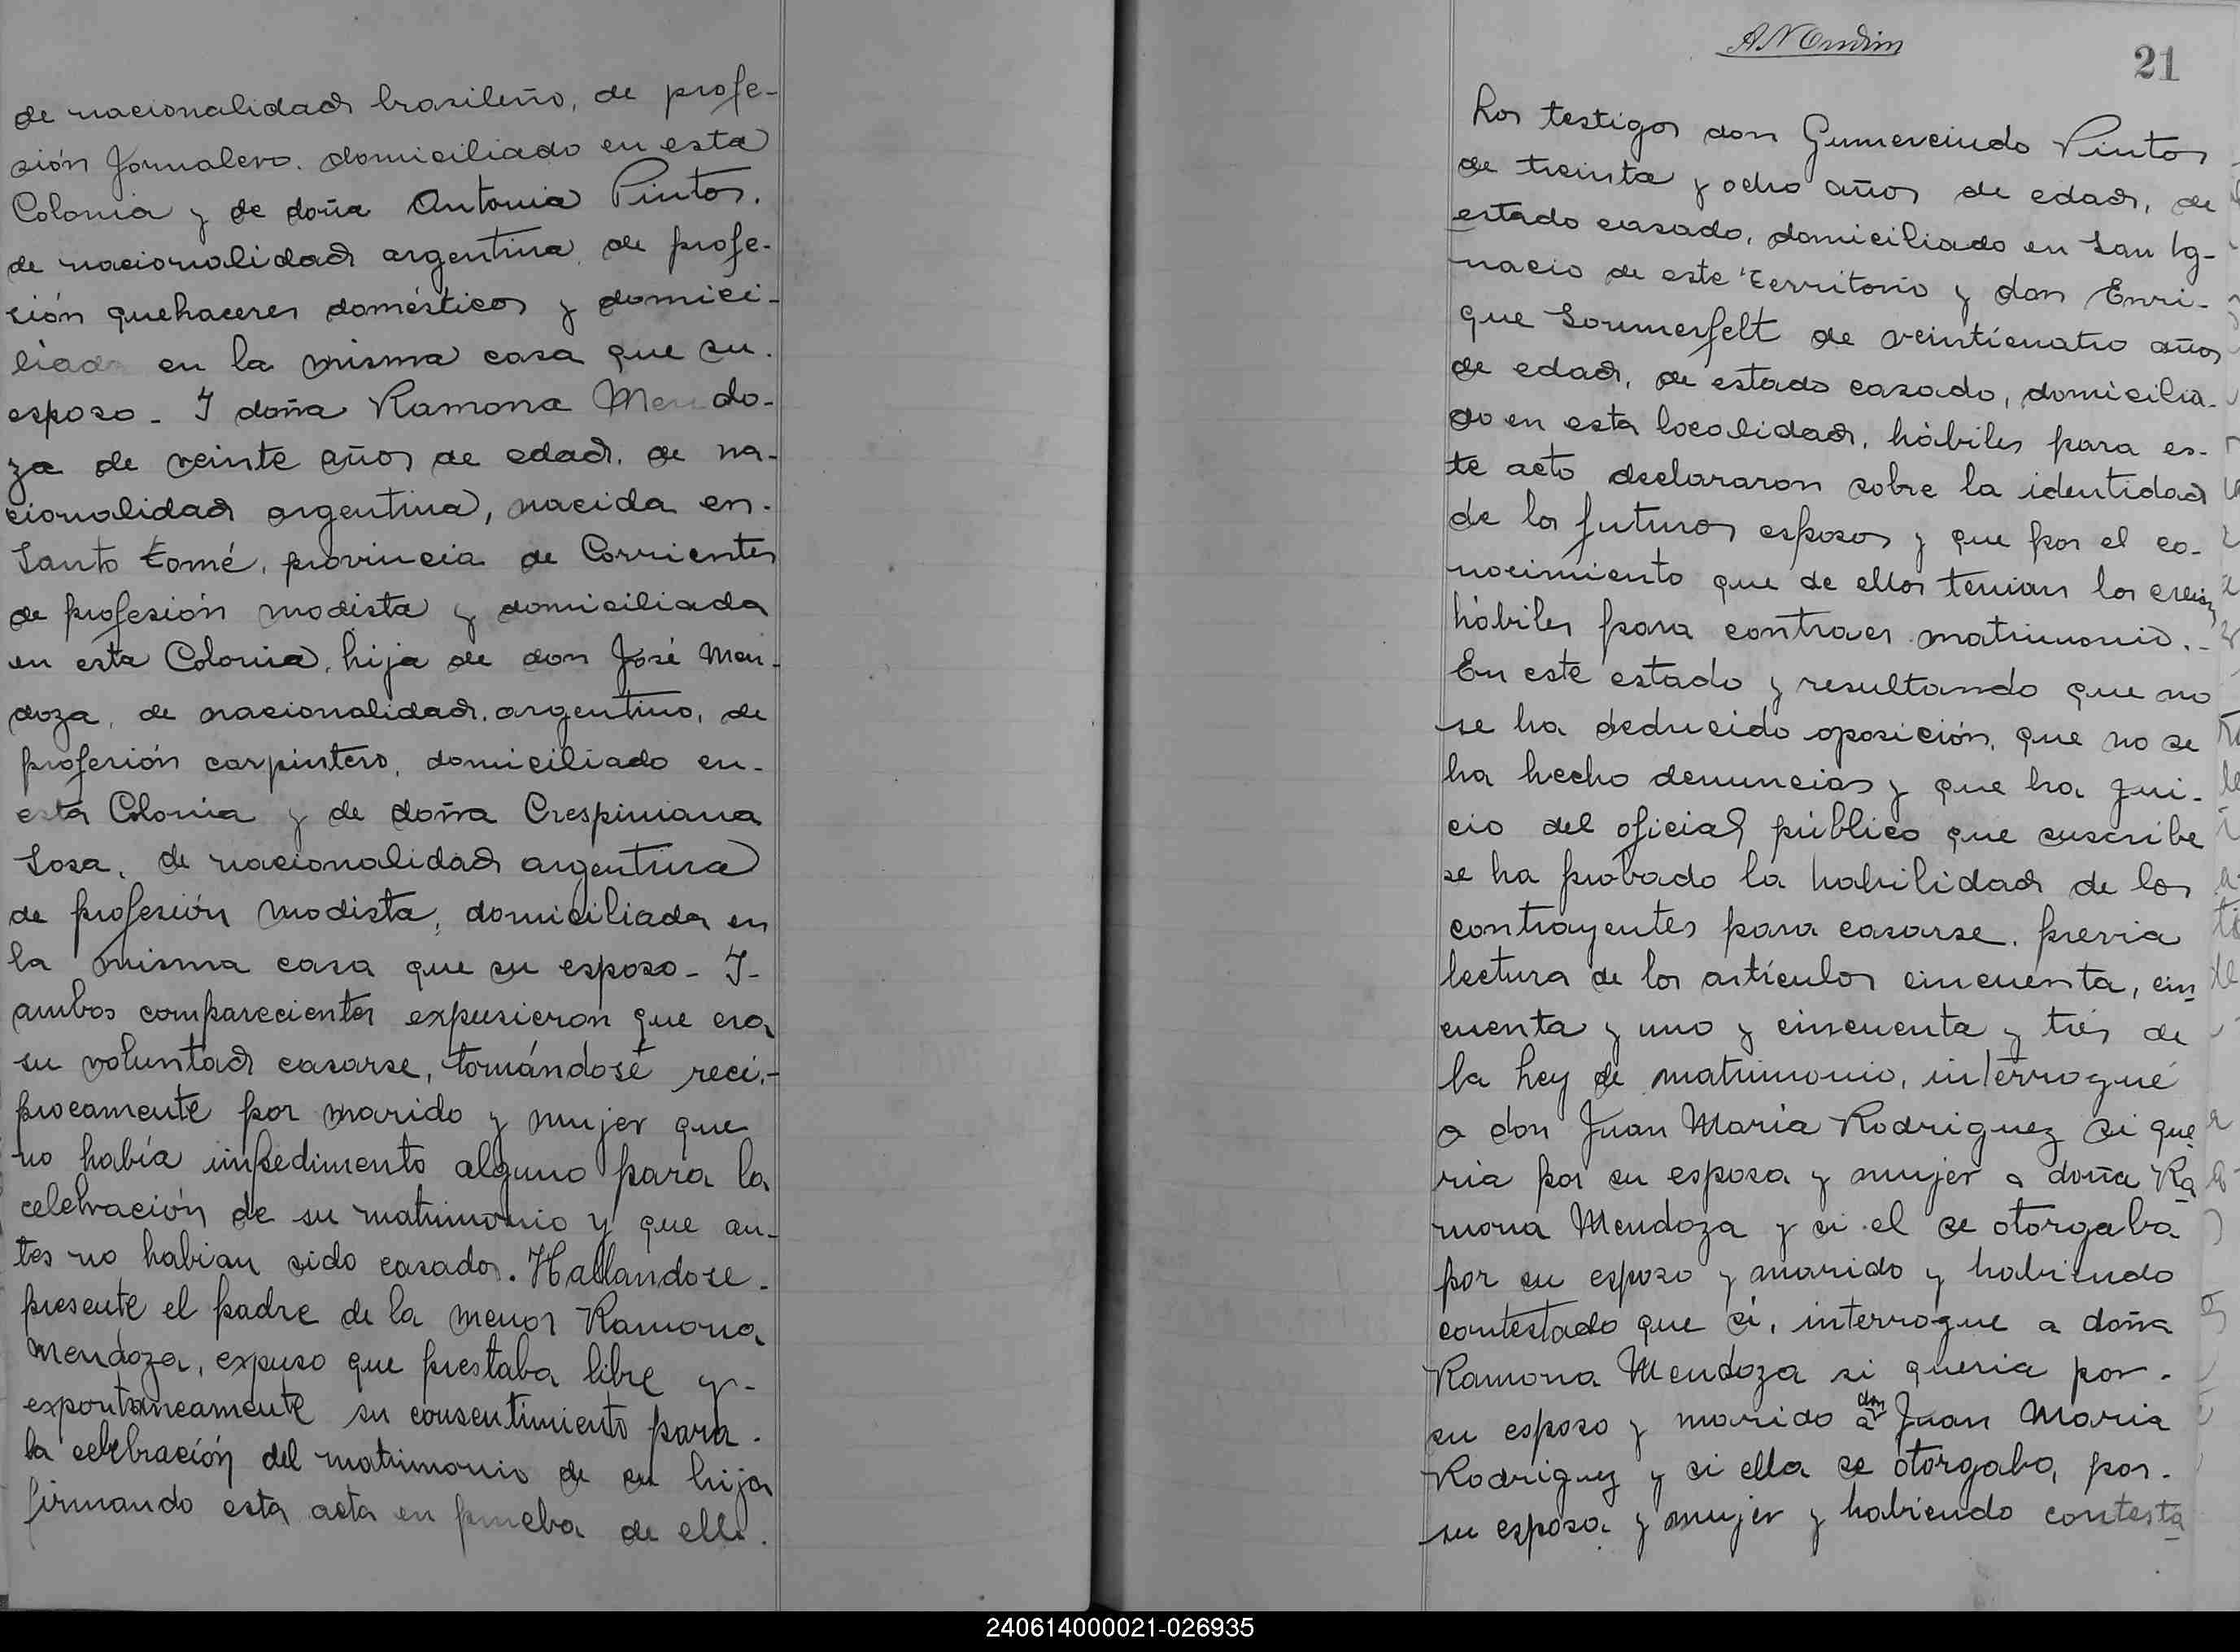 de nacionalidad brasileño, de profe-
sión Jornalero. domiciliado en esta
Colonia y de doña Antonia Pintos.
de nacionalidad argentina, de profe-
sión quehaceres domésticos y domici-
liada en la misma casa que su.
esposo - Y doña Ramona Mendo-
za de veinte años de edad. de na-
cionalidad argentina, nacida en.
Santo tomé, provincia de Corrientes
de profesión modista y domiciliada
en esta Colonia, hija de don José Men-
doza, de nacionalidad. argentino, de
profesión carpintero, domiciliado en-
esta Colonia y de doña Crespiniana
Sosa, de nacionalidad argentina
de profesión modista, domiciliada en
la misma casa que su esposo - Y-
ambos comparecientes expusieron que era
su voluntad casarse, tomándosé reci,-
procamente por marido y mujer que
no había impedimento alguno para la
celebración de su matrimonio y que an-
tes no habian sido casados. Hallandose-
presente el padre de la menor Ramona
Mendoza, expuso que prestaba libre y-
expontaneamente su consentimiento para.
la celebración del matrimonio de su hija
firmando esta acta en prueba de ello.
21
Los testigos don Gumercindo Pintos
de treinta y ocho años de edad, de
estado casado, domiciliado en San Ig-
nacio de este territorio y don Enri-
que Sommerfelt de veinticuatro años
de edad, de estado casado, domicilia-
do en esta localidad, hábiles para es-
te acto declararon sobre la identidad
de los futuros esposos y que por el co-
nocimiento que de ellos tenian los creian
hábiles para contraer matrimonio.-
En este estado y resultando que no
se ha deducido oposición, que no se
ha hecho denuncias y que ha jui-
cio del oficial público que suscribe
se ha probado la habilidad de los
contrayentes para casarse. previa
lectura de los artículos cincuenta, cin
cuenta y uno y cincuenta y trés de
la Ley de matrimonio, interrogué
a don Juan María Rodriguez si que
ria por su esposa y mujer a doña Ra
mona Mendoza y si el se otorgaba
por su esposo y marido y habiendo
contestado que si, interrogue a doña
Ramona Mendoza si queria por-
su esposo y marido a don Juan Maria
Rodriguez y si ella se otorgaba, por-
su esposa y mujer y habiendo contesta
240614000021-026935